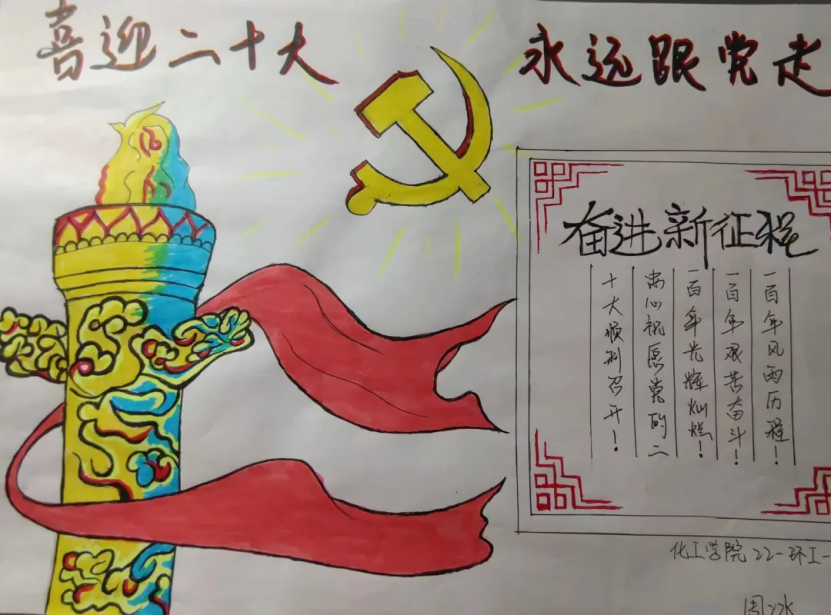 喜迎二十大
永远跟党走
奋进新征程
一百年风雨历程！
一百年艰苦奋斗！
一百年光辉灿烂！
衷心祝愿党的二
十大顺利召开！
化工学院22-环工-
周冰